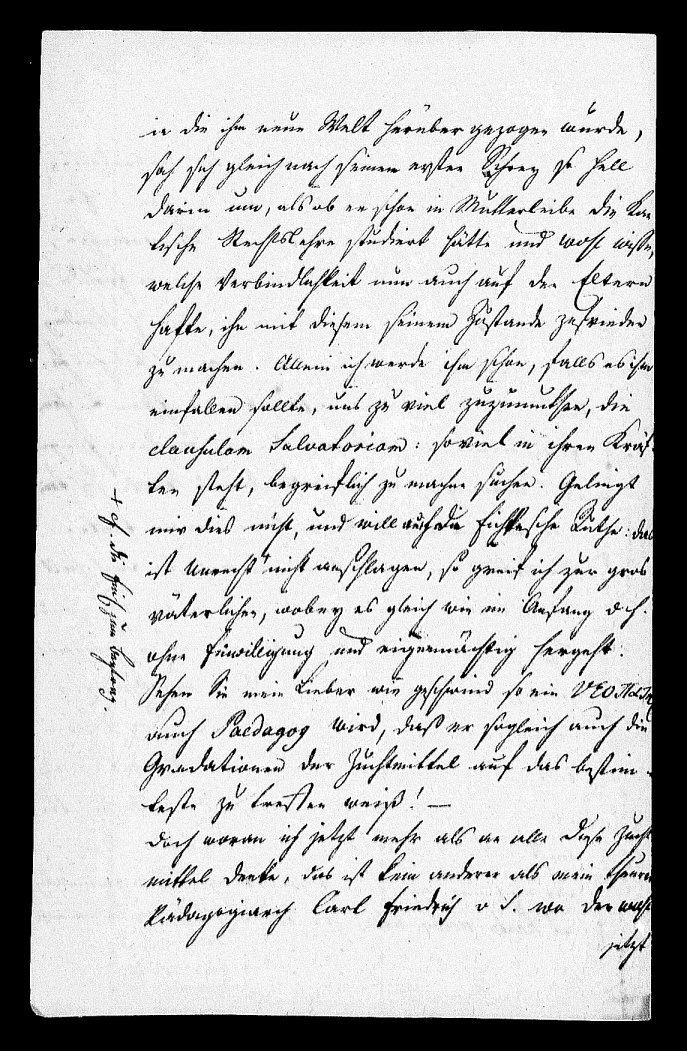 in die ihm neue Welt herüber gezogen wurde,
sah sich gleich nach seinem ersten Schrey so hell
darin um, als ob er schon in Mutterleibe die Kan
tische Rechtslehre studiert hätte und wohl wisse,
welche Verbindlichkeit nun auch auf den Eltern
hafte, ihn mit diesem seinem Zustande zufrieden
zu machen. Allein ich werde ihm schon, falls es ihm
einfallen sollte, uns zu viel zuzumuthen, die
clausulam Salvatoriam: soviel in ihren Kräf
ten steht, begreiflich zu machen suchen. Gelingt
mir dies nicht, und will auch die Fichtesche Ruthe: das
ist Unrecht nicht anschlagen, so greif ich zur groß
väterlichen, wobey es gleich wie im Anfang d. h.
ohne Einwilligung und eigenmächtig hergeht.
Sehen Sie mein Lieber wie geschwind so ein
auch Paedagog wird, daß er sogleich auch die
Gradationen der Zuchtmittel auf das bestim
teste zu treffen weiß! —
Doch woran ich jetzt mehr als an alle diese Zucht
mittel denke, das ist kein anderer als mein theurer
Pädagogiarch Carl Friedrich d. I. wo der wohl
jetzt
+ cf. die zum Anfang.